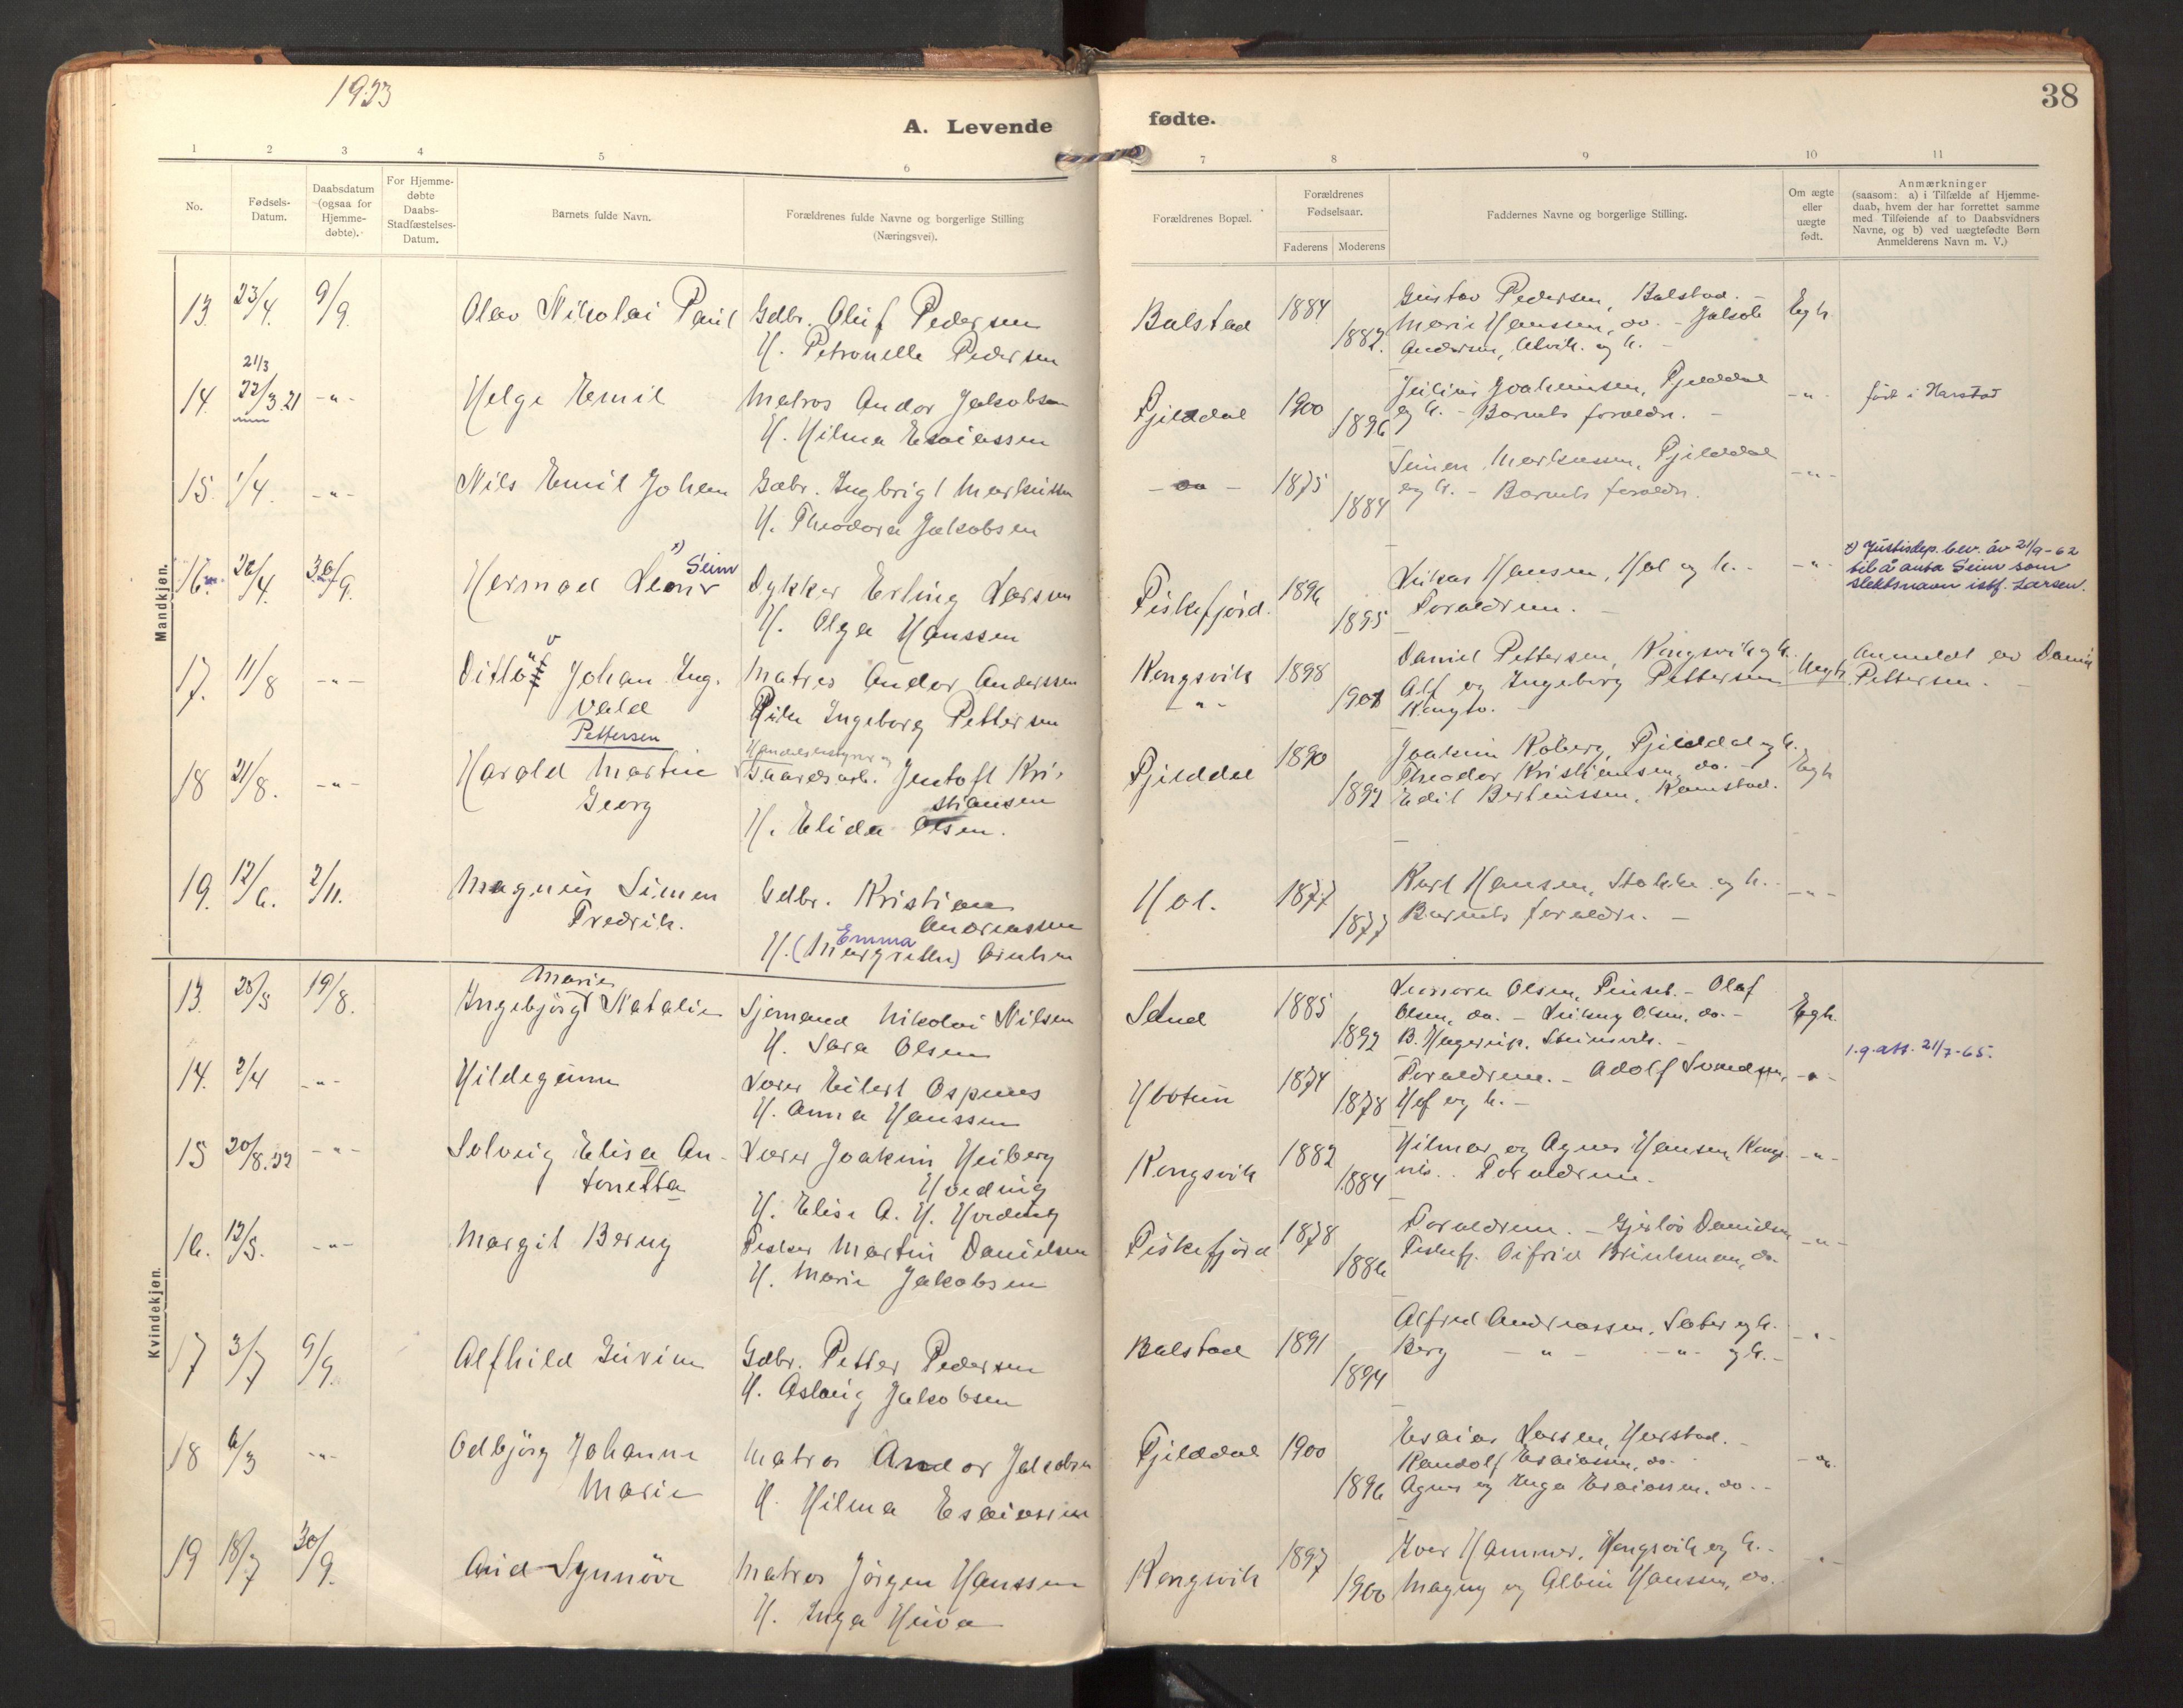 1923
38
A. Levende
fødte.
1 2 3 4 5 6
7 8 9 10 11
No.
Fødsels-Datum.
Daabsdatum (ogsaa for Hjemme-døbte).
For Hjemme-døbte Daabs-Stadfæstelses-Datum.
Barnets fulde Navn.
Forældrenes fulde Navne og borgerlige Stilling
(Næringsvei).
Forældrenes Bopæl.
Forældrenes Fødselsaar.
Faderens Moderens
Faddernes Navne og borgerlige Stilling.
Om ægte eller uægte født.
Anmærkninger
(saasom: a) i Tilfælde af Hjemme-
daab, hvem der har forrettet samme
med Tilføiende af to Daabsvidners
Navne, og b) ved uægtefødte Børn
Anmelderens Navn m. V.)
Mandkjøn.
13. 23/4. 9/9. Olav Nikolai Paul Gdbr. Oluf Pedersen
H. Petronelle Pedersen
Balstad 1884 1882. Gustav Pedersen, Balstad. -
Marie Hanssen, do. - Jakob
Andersen, og h. -
Egh.
21/3
14. 22/3.21 -"- Helge Emil Matros Andor Jakobsen
H. Hilma Esaiassen
Fjelddal 1900 1896 Julius Joakimsen, Fjelddal
og h. - Barnets foreldr. -
-"- født i Harstad
15. 1/4. -"- Nils Emil Johan Gdbr. Ingbrigt Markussen
H. Theodora Jakobsen
- do - 1875 1884 Simon Markussen, Fjelddal
og h. - Barnets foreldr.
-"-
16. 26/4. 30/9. Hermod Leonr x) Seim Dykker Erling Larsen
H. Olga Hanssen
Fiskefjord. 1896 1895 Lukas Hansen, Hol og h. -
Foreldrene. -
-"-
x) Justisdep. bev. av 21/9-62
til å anta Seim som
slektsnavn istf. Larsen.
17. 11/8 -"- Johan Ing-
vald
Pettersen
Matros Andor Anderssen
Pike Ingeborg Pettersen
Kongsvik -"- 1898 1901 Daniel Pettersen, Kongsvik og h.
Alf og Ingeborg Pettersen
Kongsv.
Uegh. Anmeldt av Daniel
Pettersen. -
18 21/8. -"- Harald Martin
Georg
Handelsbestyrer og
Gaardsarb. Jentoft Kri-
stiansen
H. Elida Olsen.
Fjelddal 1890 1892 Joakim Roberg, Fjelddal og h.
Theodor Kristiansen, do. -
Edit Bertinssen, Ramstad.
Egh
19. 12/6. 2/11. Magnus Simon
Fredrik.
Gdbr. Kristian
Andreassen
H. (Margrethe) Emma
Hol. 1877 1877 Karl Hansen, Stokke og h. -
Barnets foreldre. -
-"-
Kvindekjøn.
13. 28/5 19/8. Ingebjørg Marie Natalie Sjømand Nikolai Nilsen
H. Sara Olsen
Sand 1885 1892 Leonora Olsen, - Olaf
Olsen, do. - Olsen, do. -
B. Hagerup, -
Egh.
1.g. att. 21/7-65.
14. 2/4 -"- Hildegunn Lærer Eilert Ospenes
H. Anna Hanssen
1874 1878 Foreldrene. - Adolf
og h. -
-"-
15 20/8.22 -"- Solveig Elisa An-
tonetta
Lærer Joakim Heiberg
Hveding
H. Elise A. H. Hveding
Kongsvik 1882 1884 Hilmar og Agnes Hansen, Kongs-
vik. Foreldrene.
-"-
16. 12/5. -"- Margit Berny Fisker Martin Danielsen
H. Marie Jakobsen
Fiskefjord 1878 1886 Foreldrene. - Danielsen
Fiskefj. Brinkman, do.
-"-
17 3/7 9/9. Alfhild Gurine Gdbr. Petter Pedersen
H. Aslaug Jakobsen
Balstad 1891 1894 Alfred Andreassen, og h.
Berg -"- -"- og h. -
-"-
18 6/3 -"- Odbjörg Johanne
Marie
Matros Andor Jakobsen
H. Hilma Esaiassen
Fjelddal 1900 1896 Esaias Larsen, Harstad. -
Randolf Esaiassen, do. -
Agnes og Inga Esaiassen, do. -
-"-
19 18/7 30/9. Aud Synnöve Matros Jörgen Hanssen
H. Inga
Kongsvik 1897 1900 Iver Hammer, Kongsvik og h. -
Magny og Albin Hanssen, do.
-"-